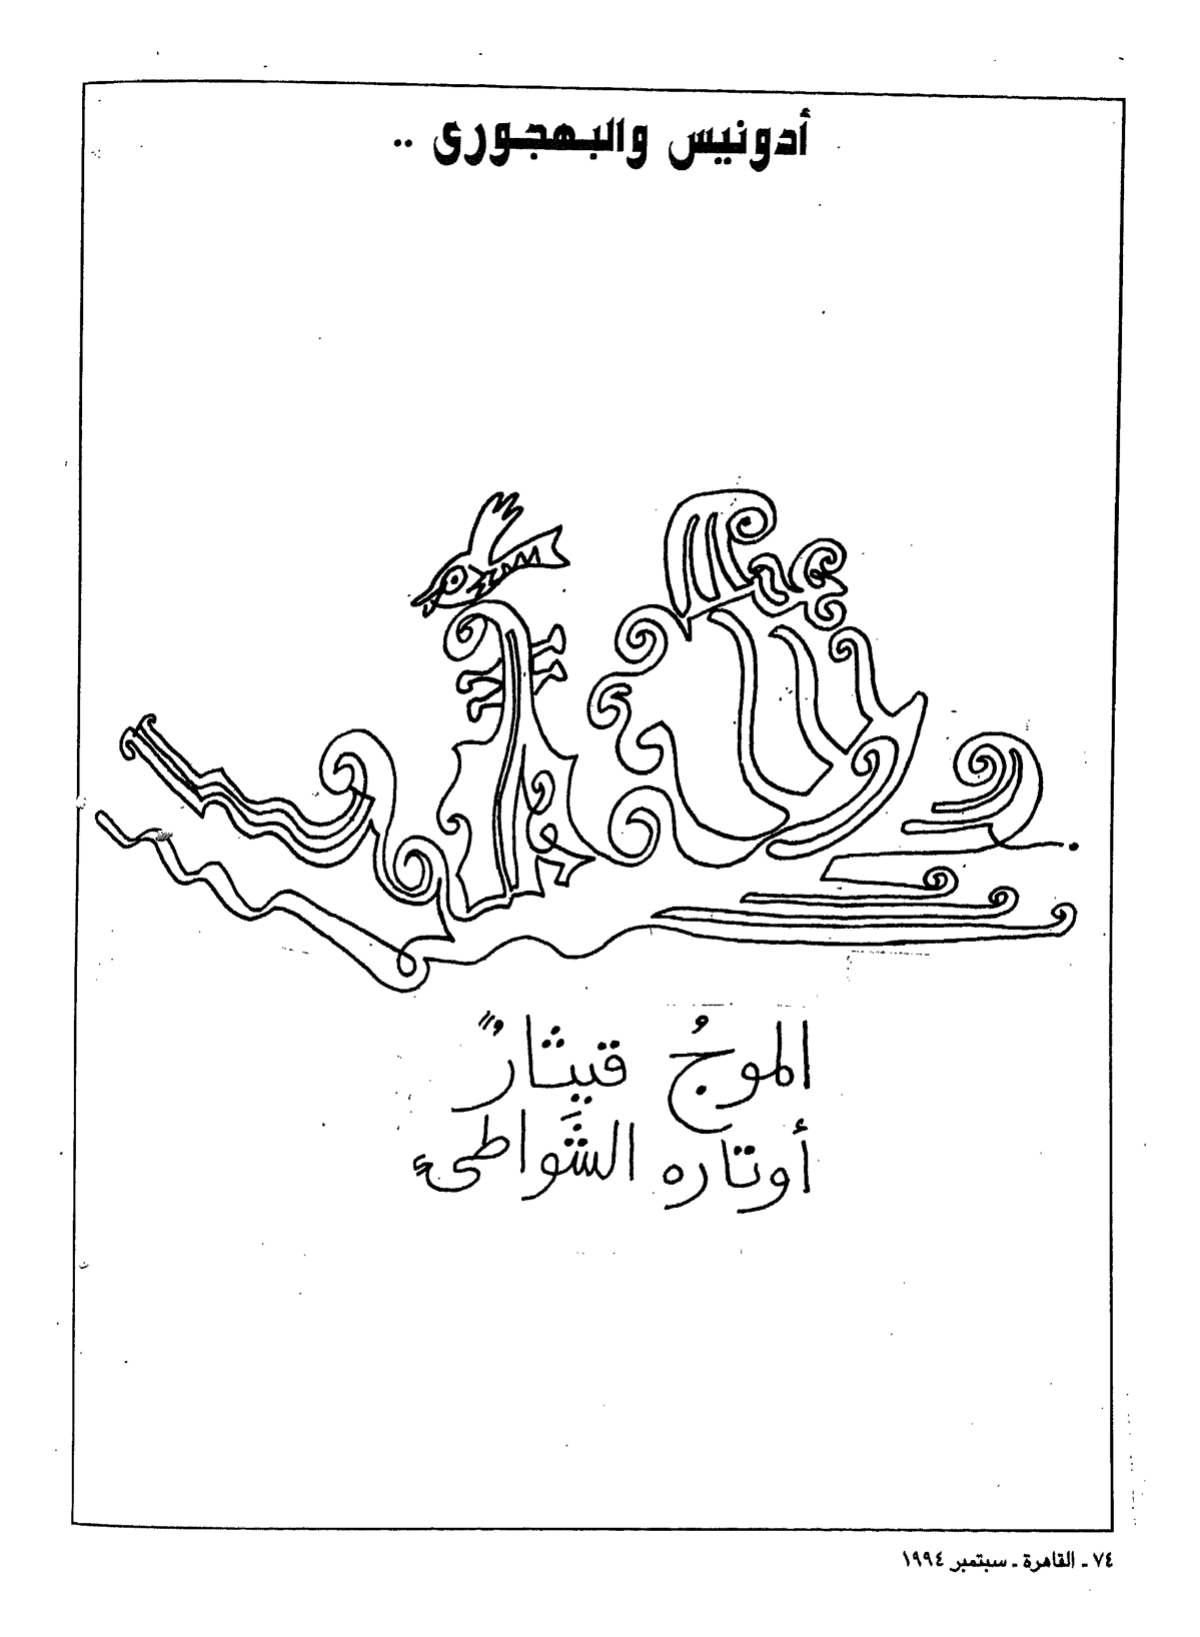 أدونيس والبهجورى ..
الموجُ قيثارٌ
أوتاره الشَّواطئِ
٧٤ - القاهرة - سبتمبر ١٩٩٤